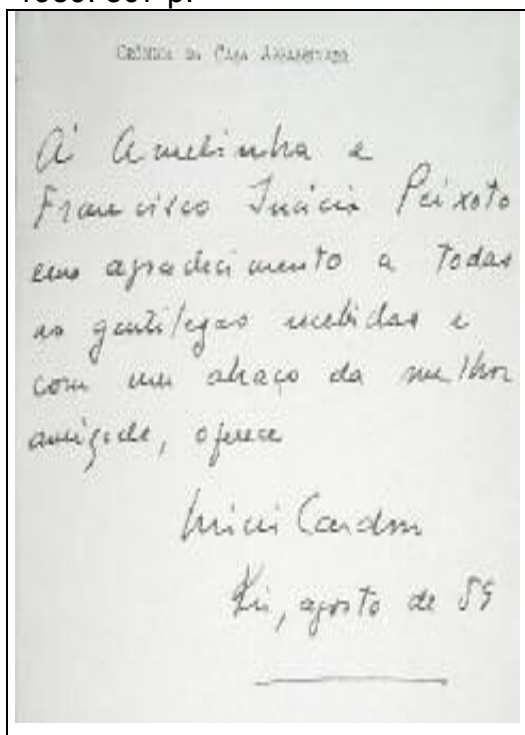 CRÔNICA DA CASA ASSASSINADA
À Amelinha e
Francisco Inácio Peixoto
em agradecimento a todas
as gentilezas recebidas e
com um abraço da melhor
amizade, oferece
Lúcio Cardoso
Rio, agosto de 59